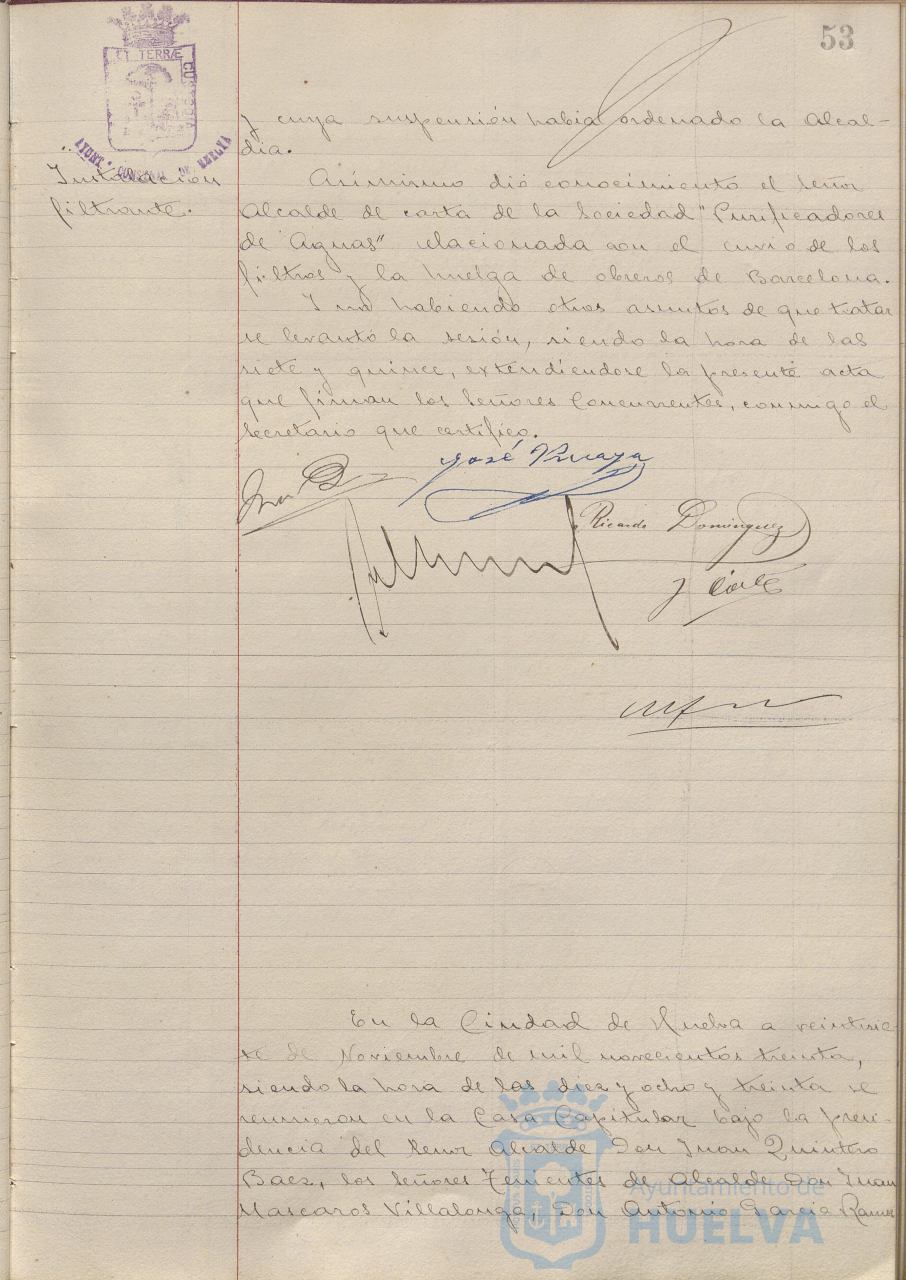 53
ET TERRÆ CUSTODIA
AYUNT. CONSTNAL. DE HUELVA
y cuya suspensión habia ordenado la Alcal-
dia.
Instalación
filtrante.
Asimismo dió conocimiento el señor
Alcalde de carta de la Sociedad "Purificadores
de Aguas" relacionada con el envio de los
filtros y la huelga de obreros de Barcelona.
Y no habiendo otros asuntos de que tratar
se levantó la sesión, siendo la hora de las
siete y quince, extendiendose la presente acta
que firman los Señores Concurrentes, conmigo el
Secretario que certifico.
José
Ricardo Dominguez
En la Ciudad de Huelva a veintisie-
te de Noviembre de mil novecientos treinta,
siendo la hora de las diez y ocho y treinta se
reunieron en la Casa Capitular bajo la presi-
dencia del Señor Alcalde Don Juan Quintero
Baez, los Señores Tenientes de Alcalde Don Juan
Mascaros Villalonga, Don Antonio Garcia Ramos
Ayuntamiento de
HUELVA